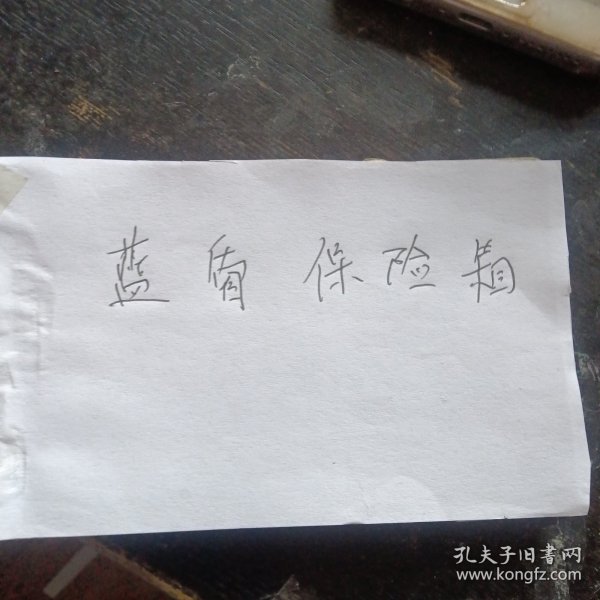 蓝盾保险箱
孔夫子旧书网
www.kongfz.com